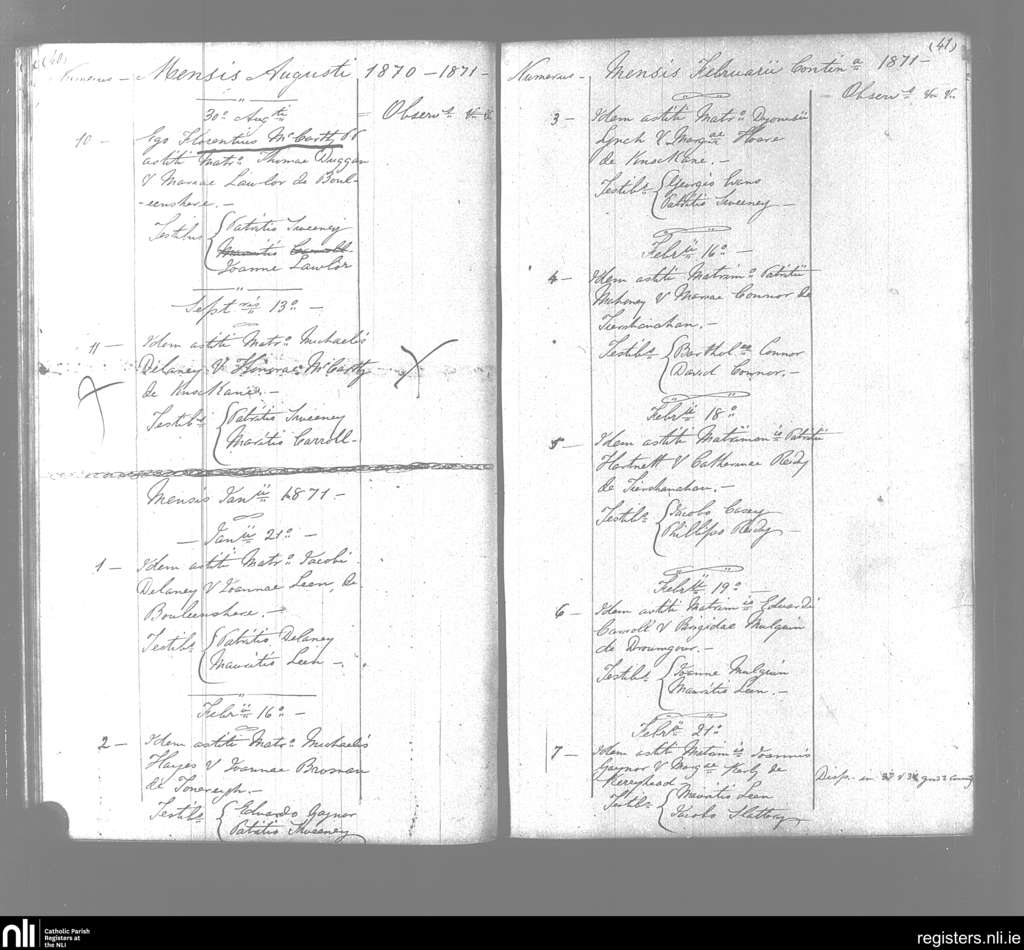 (40)
Numerus - Mensis Augusti 1870-1871-
30º Augti = Observt &c &c
10 - Ego Florentius McCarthy PP
astiti Matro Thomae Duggan
& Mariae Lawlor de Boul-
-eenshere. -
Testibus { Patritio Sweeney
Mauritio Carroll
Joanne Lawlor
Septris 13º -
11 - Idem astiti Matro Michaelis
Delaney & Honorae McCarthy
de Knockane. -
Testibs { Patritio Sweeney
Mauritio Carroll -
Mensis Janii 1871 -
- Janii 21º -
1 - Idem astiti Matro Jacobi
Delaney & Joannae Leen, de
Bouleenshere. -
Testibs { Patritio Delaney
Mauritio Leen -
Febrii 16º -
2 - Idem astiti Matro Michaelis
Hayes & Joannae Brosnan
de Tonereigh. -
Testibs { Eduardo Gaynor
Patritio Sweeney
(41)
Numerus - Mensis Februarii Contina 1871 -
- Observt &c &c
3 - Idem astiti Matro Dyonisii
Lynch & Margae Hoare
de Knockane. -
Testibs { Georgio Evans
Patritio Sweeney -
Febrii 16º -
4 - Idem astiti Matrimo Patritii
Mahoney & Mariae Connor de
Tiershanahan. -
Testibs { Barthole Connor
David Connor. -
Febrii 18º
5 - Idem astiti Matrimonio Patritii
Hartnett & Catherinae Reidy
de Tiershanahan. -
Testibs { Jacobo Casey
Phillipo Reidy -
Febrii 19º -
6 - Idem astiti Matrimio Eduardi
Carroll & Brigidae Mulquin
de Droumgour. -
Testibs { Joanne Mulquin
Mauritio Leen. -
Febrii 21º
7 - Idem astiti Matrimio Joannis
Gaynor & Margae Karly de
Kereyhead Disp. in
Testibs { Mauritio Leen
Jacobo Slattery
nli Catholic Parish
Registers at
the NLI
registers.nli.ie